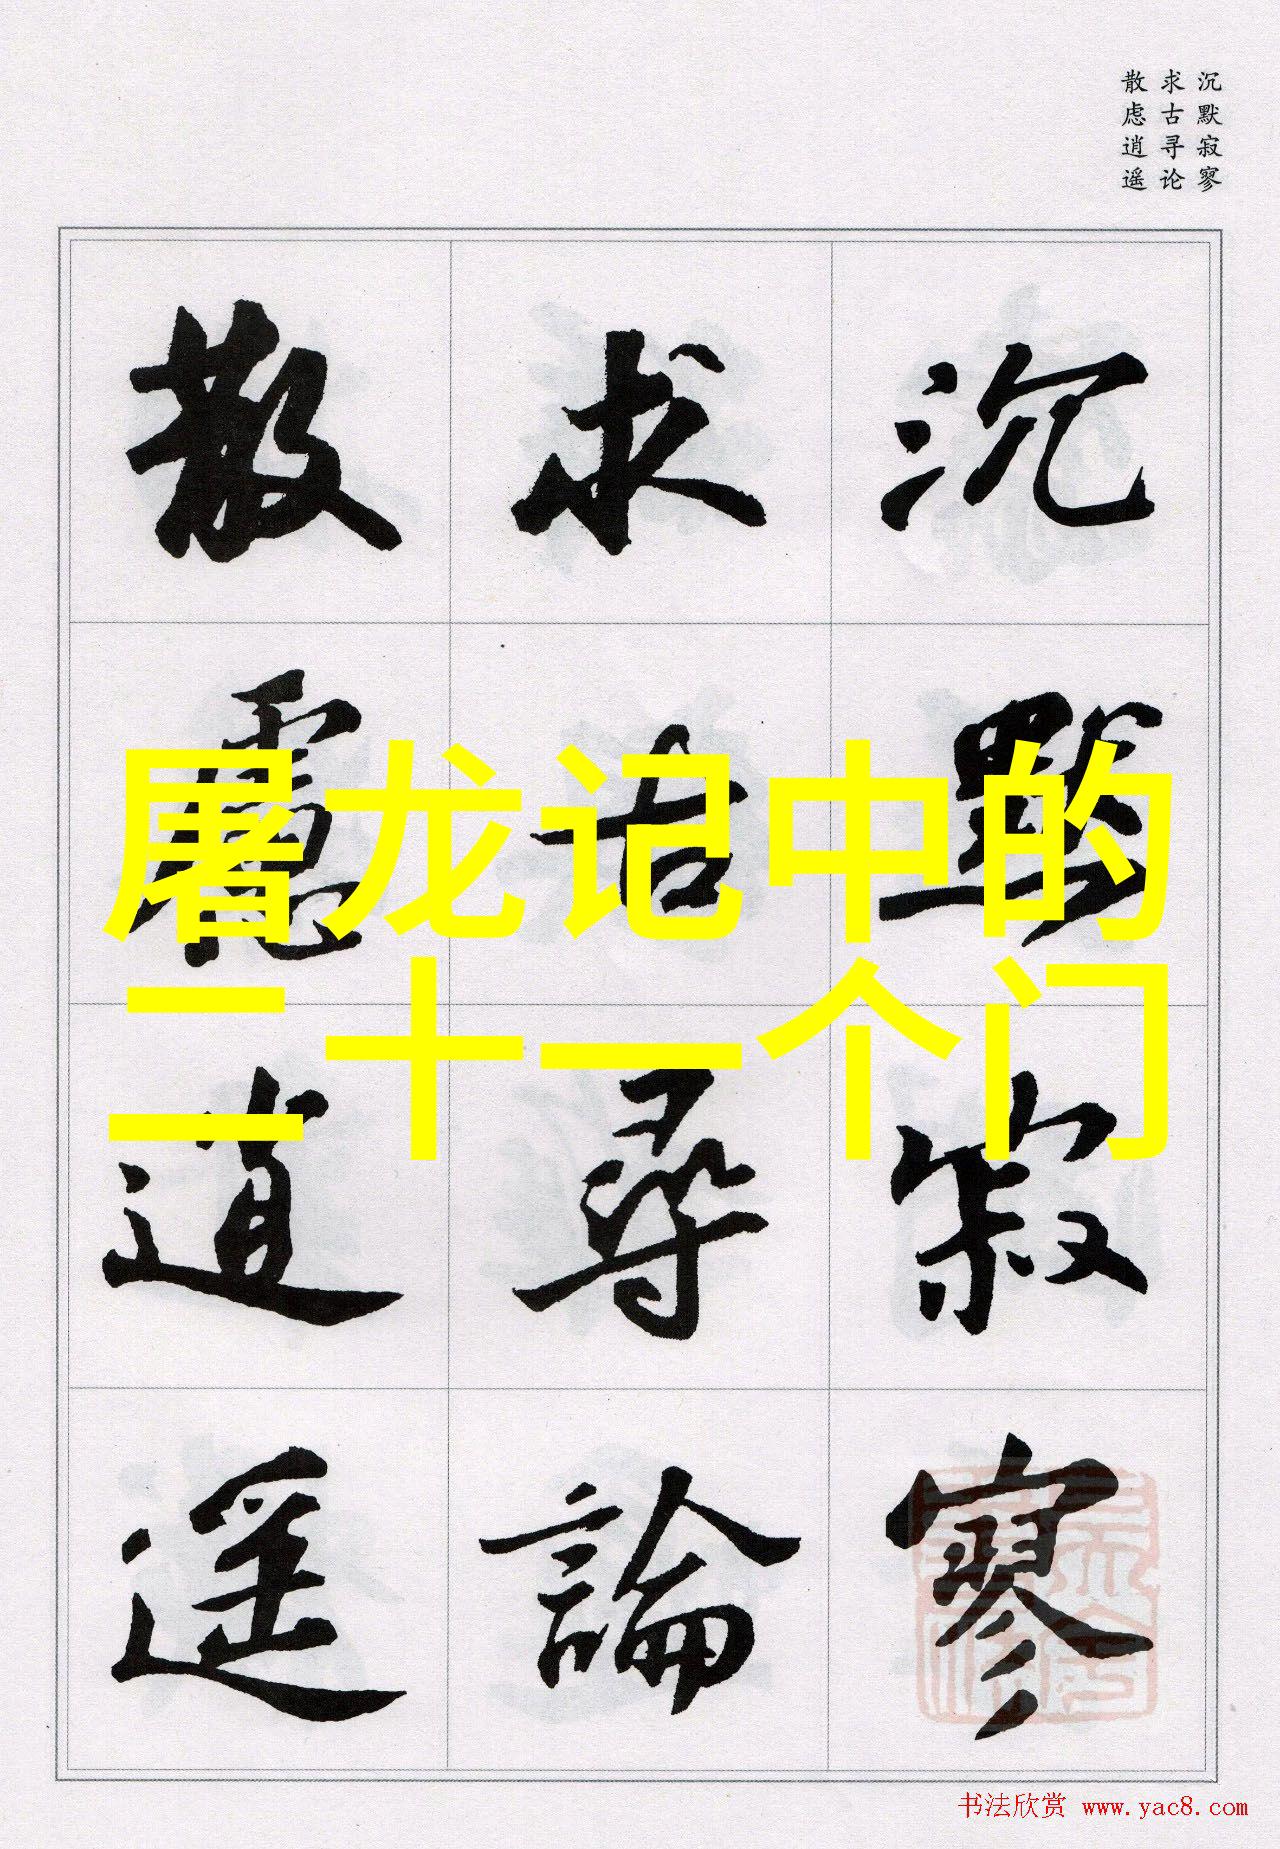 沉默寂寥
求古寻论
散虑逍遥
沉默寂寥
求古尋論
散慮逍遥
屠龙记中的
二十一个门
书法欣赏 www.yac8.com